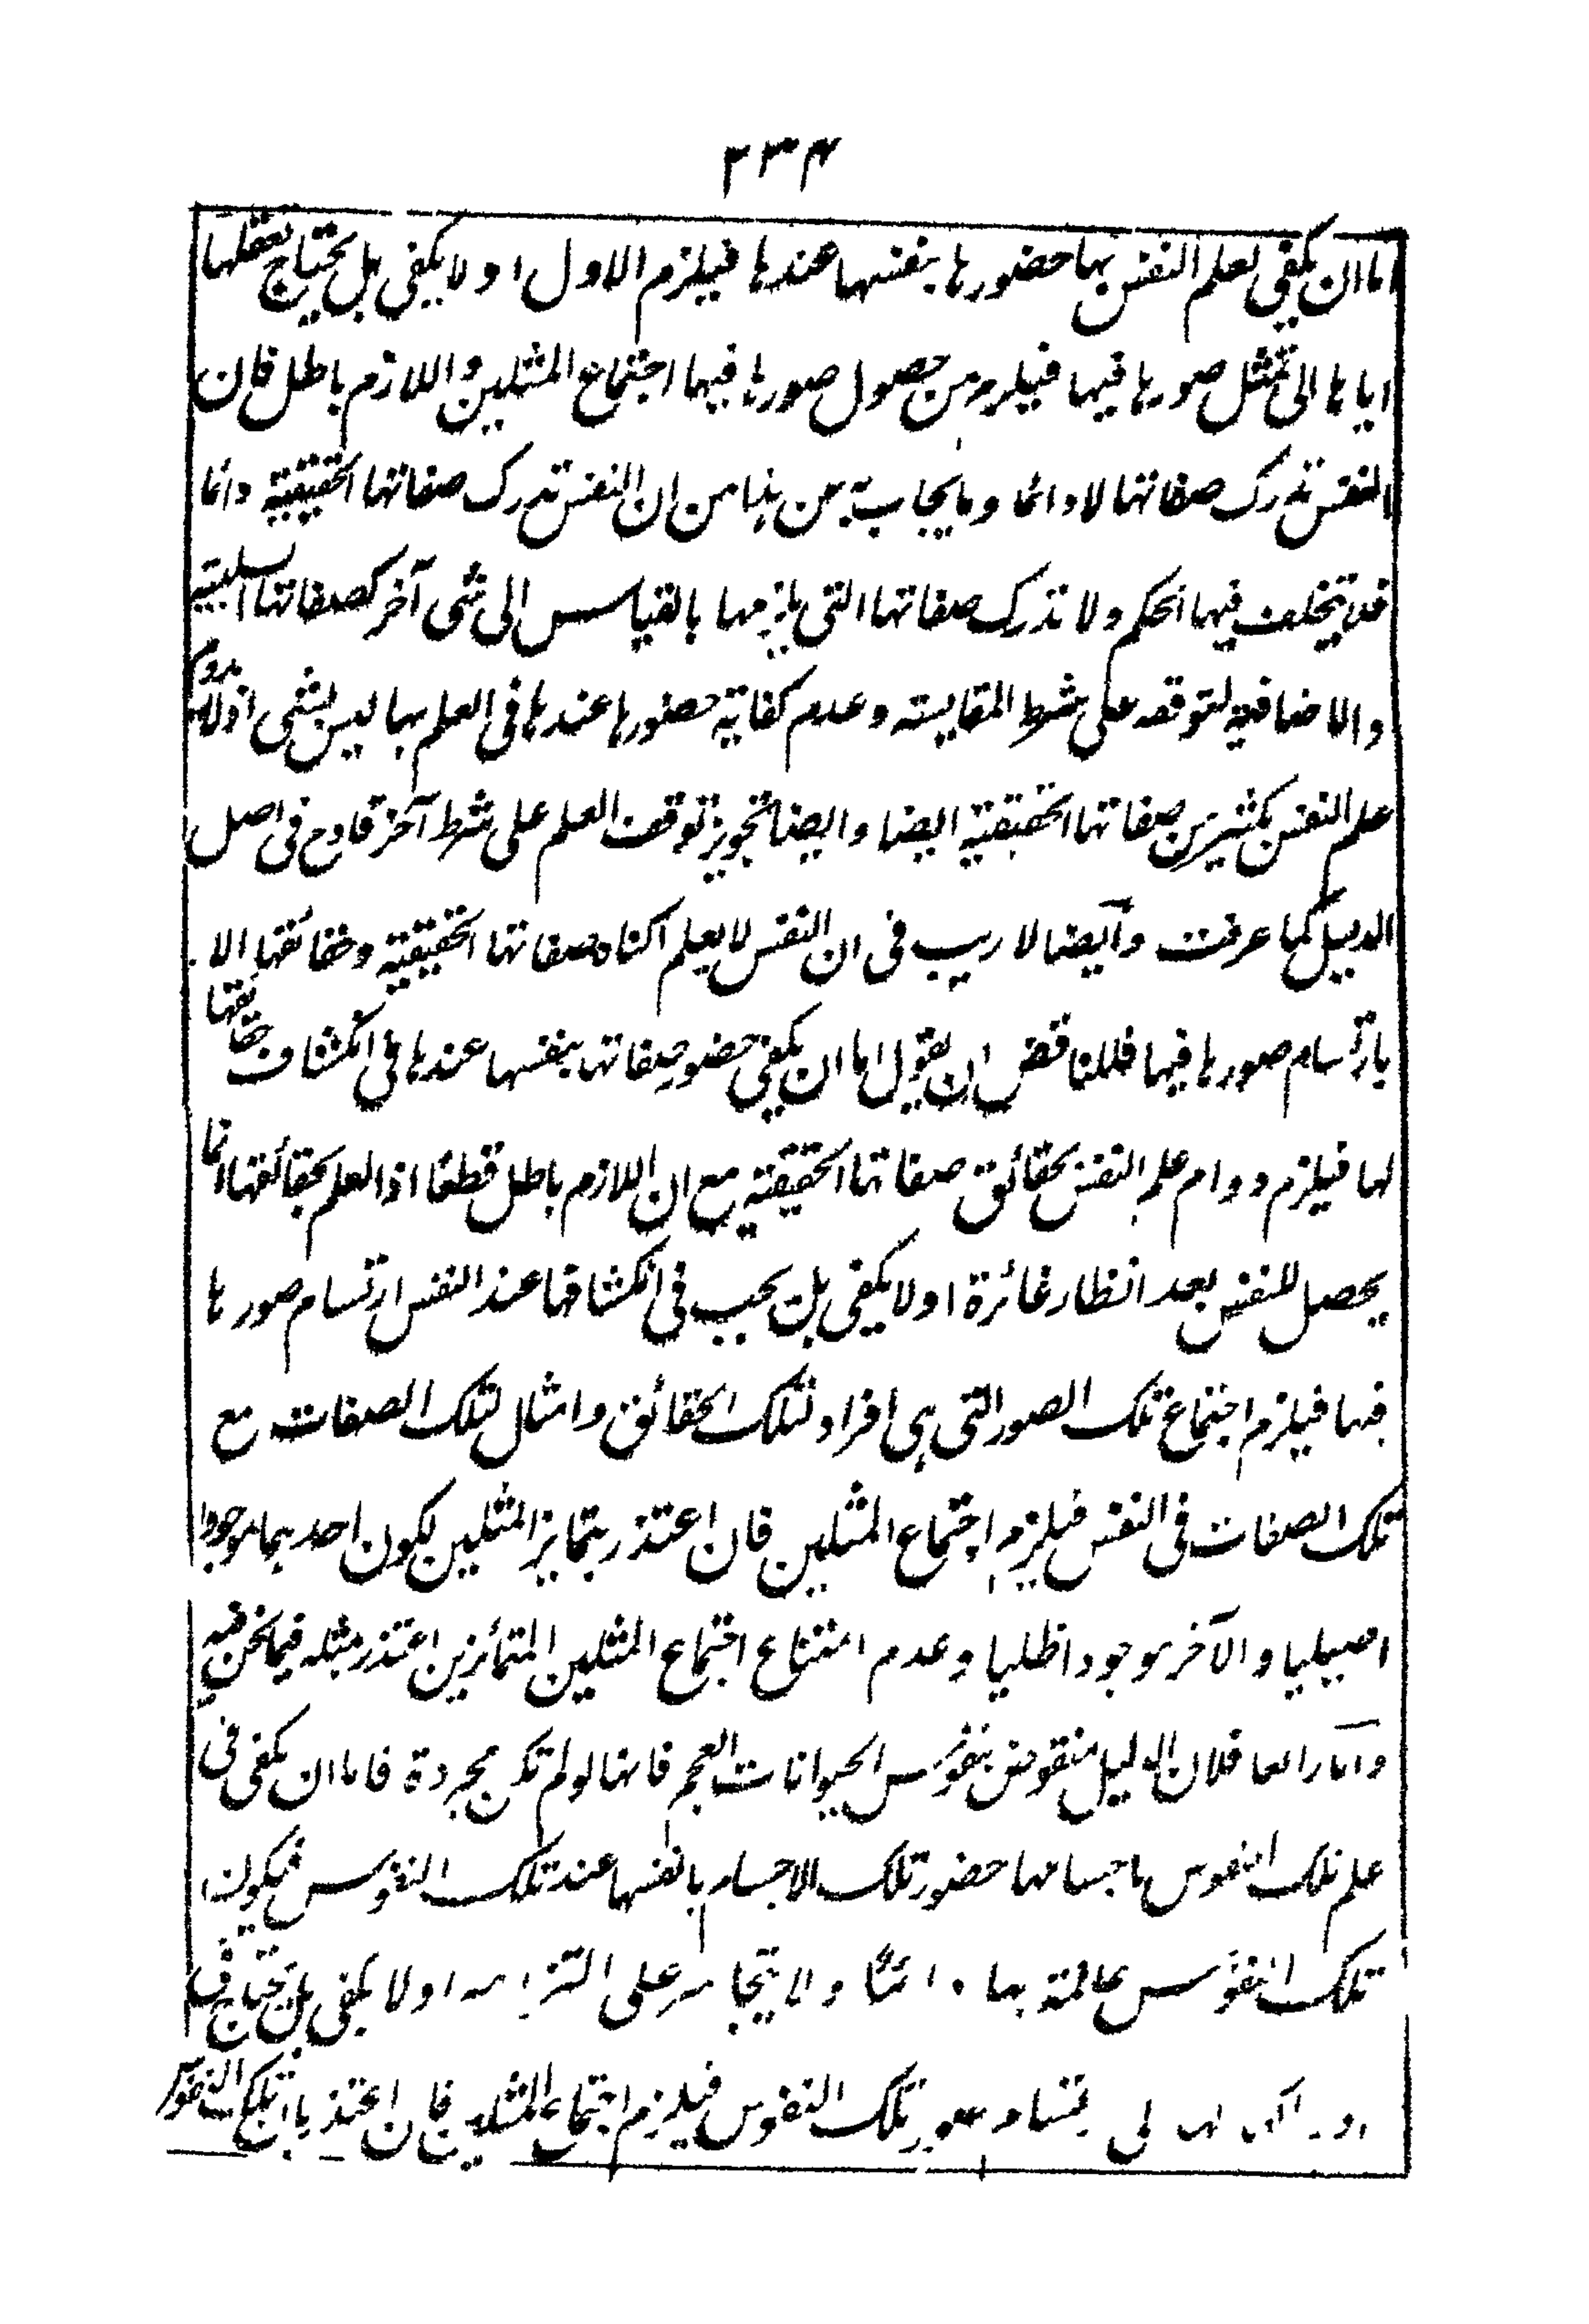 ٢٣٤
اما ان يكفى لعلم النفس بها حضورها بنفسها عندها فيلزم الاول او لا يكفى بل يحتاج تعقلها
اياها الى تمثل صورها فيها فيلزم من حصول صورها فيها اجتماع المثلين واللازم باطل فان
النفس تدرك صفاتها لا دائما وما يجاب به عن هذا من ان النفس تدرك صفاتها الحقيقية دائما
فلا يتخلف فيها الحكم ولا تدرك صفاتها التى يلزمها بالقياس الى شى آخر كصفاتها السلبية
والاضافية لتوقفه على شرط المقايسته وعدم كفاية حضورها عندها فى العلم بها ليس بشى اذ لا يدوم
علم النفس بكثير من صفاتها الحقيقية ايضا وايضا تجويز توقف العلم على شرط آخر قادح فى اصل
الدليل كما عرفت وآيضا لا ريب فى ان النفس لا يعلم اكناه صفاتها الحقيقية وحقائقها الا
بارتسام صورها فيها فللناقض ان يقول اما ان يكفى حضور صفاتها بنفسها عندها فى انكشاف حقائقها
لها فيلزم دوام علم النفس بحقائق صفاتها الحقيقية مع ان اللازم باطل قطعا اذ العلم بحقائقها انما
يحصل للنفس بعد انظار غائرة او لا يكفى بل يجب فى انكشافها عند النفس ارتسام صورها
فيها فيلزم اجتماع تلك الصور التى هى افراد لتلك الحقائق وامثال لتلك الصفات مع
تلك الصفات فى النفس فيلزم اجتماع المثلين فان اعتذر بتمايز المثلين لكون احدهما موجودا
اصيليا والآخر موجودا ظليا وعدم امتناع اجتماع المثلين المتمائزين اعتذر بمثله فيما نحن فيه
وآما رابعا فلان الدليل منقوض بنفوس الحيوانات العجم فانها لو لم تكن مجردة فاما ان يكفى فى
علم تلك النفوس باجسامها حضور تلك الاجسام بانفسها عند تلك النفوس فيكون
تلك النفوس عالمة بها دائما ولا يتجاسر على التزامه او لا يكفى بل يحتاج فى
ارتسام صور تلك النفوس فيلزم اجتماع المثلين فان اعتذر بان تلك النفوس